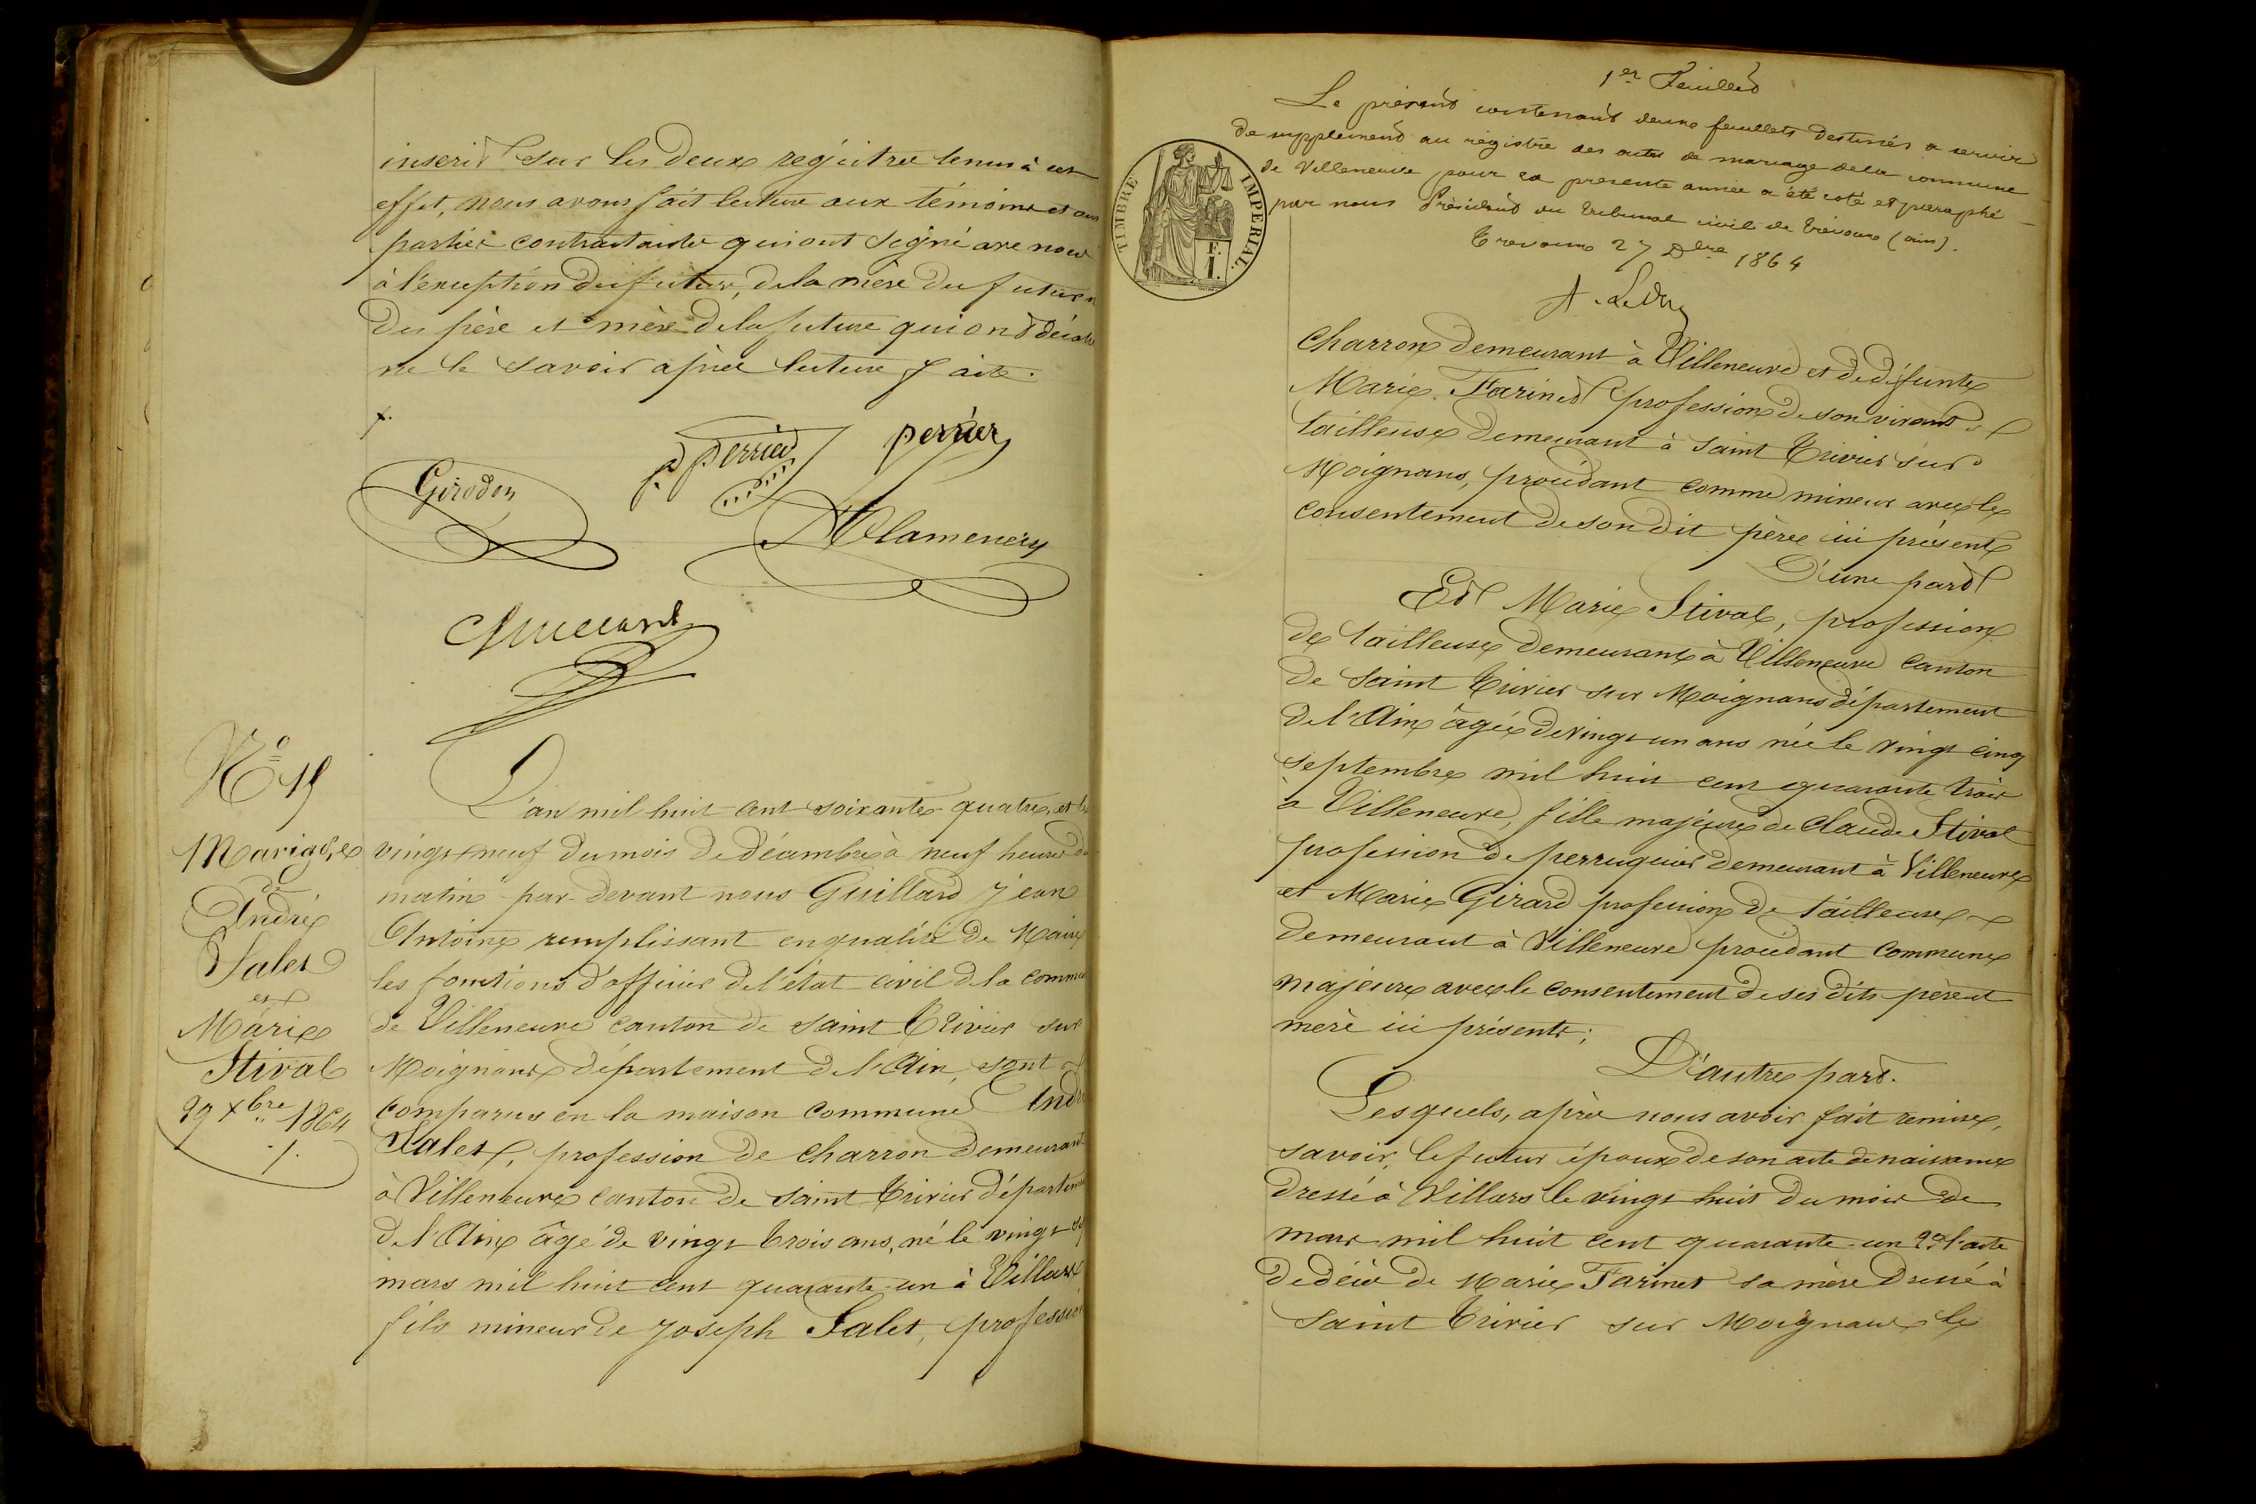 inscrit sur les deux registre tenus à cet
effet, nous avons fait lecture aux témoins et aux
parties contractante qui ont signé ave nous
à l'éxception du futur, de la mère du futur
des père et mère de la future qui ont déclaré
ne le savoir après lecture faite.
Girodon
P perrier
perrier
Clamenein
Guillard
N° 19
Mariage
de
André
Salet
et
Marie
Stival
29 xbre 1864
L'an mil huit cent soixante quatre, et le
vingt neuf du mois de décembre à neuf heures du
matin par devant nous Guillard jean
Antoine remplissant en qualité de Maire
les fonctions d'officier de l'état civil de la commune
de Villeneuve canton de saint Trivier sur
Moignans département de l'Ain, sont
comparus en la maison commune André
Salet, profession de charron demeurant
à Villeneuve canton de saint Trivier département
de l'Ain âgé de vingt trois ans, né le vingt
mars mil huit cent quarante un à Villars
fils mineur de joseph Salet, profession
1er Feuillet
Le présent contenant deux feuillets destinés a servir
de supplément au régistre des actes de mariage de la commune
de Villeneuve pour la présente année a été coté et paraphé
par nous Président du tribunal civil de Trévoux (ain).
Trevoux 27 Dbre 1864
TIMBRE IMPERIAL.
F.
1.
charron demeurant à Villeneuve et de défunte
Marie Farinet profession de son vivant
tailleuse demeurant à saint Trivier sur
Moignans, procédant comme mineur avec le
consentement de son dit père ici présent
D'une part
Et Marie Stival, profession
de tailleuse demeurant à Villeneuve canton
de saint Trivier sur Moignans département
de l'Ain âgée de vingt un ans née le vingt cinq
septembre mil huit cent quarante trois
a Villeneuve, fille majeure de claude Stival
profession de perruquier demeurant à Villeneuve
et Marie Girard profession de tailleuse
demeurant à Villeneuve procédant comme
majeure avec le consentement de ses dits père et
merè ici présents;
D'autre part.
Lesquels, après nous avoir fait remise,
savoir, le futur époux de son acte de naissance
dressé à Villars le vingt huit du mois de
mars mil huit cent quarante un 2° l'acte
de décè de Marie Farinet sa mère dressé à
saint Trivier sur Moignans le